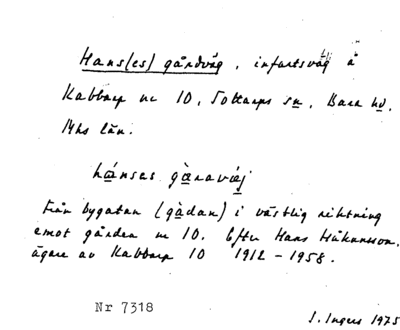 Hans(es) gårdväg, infartsväg å
Kabbarp nr 10, Tottarps sn, Bara hd,
Mhs län.
hánsas gàraväj
Från bygatan (gàdan) i västlig riktning
emot gården nr 10. Efter Hans Håkansson,
ägare av Kabbarp 10 1912 - 1958.
Nr 7318
I. Ingers 1975